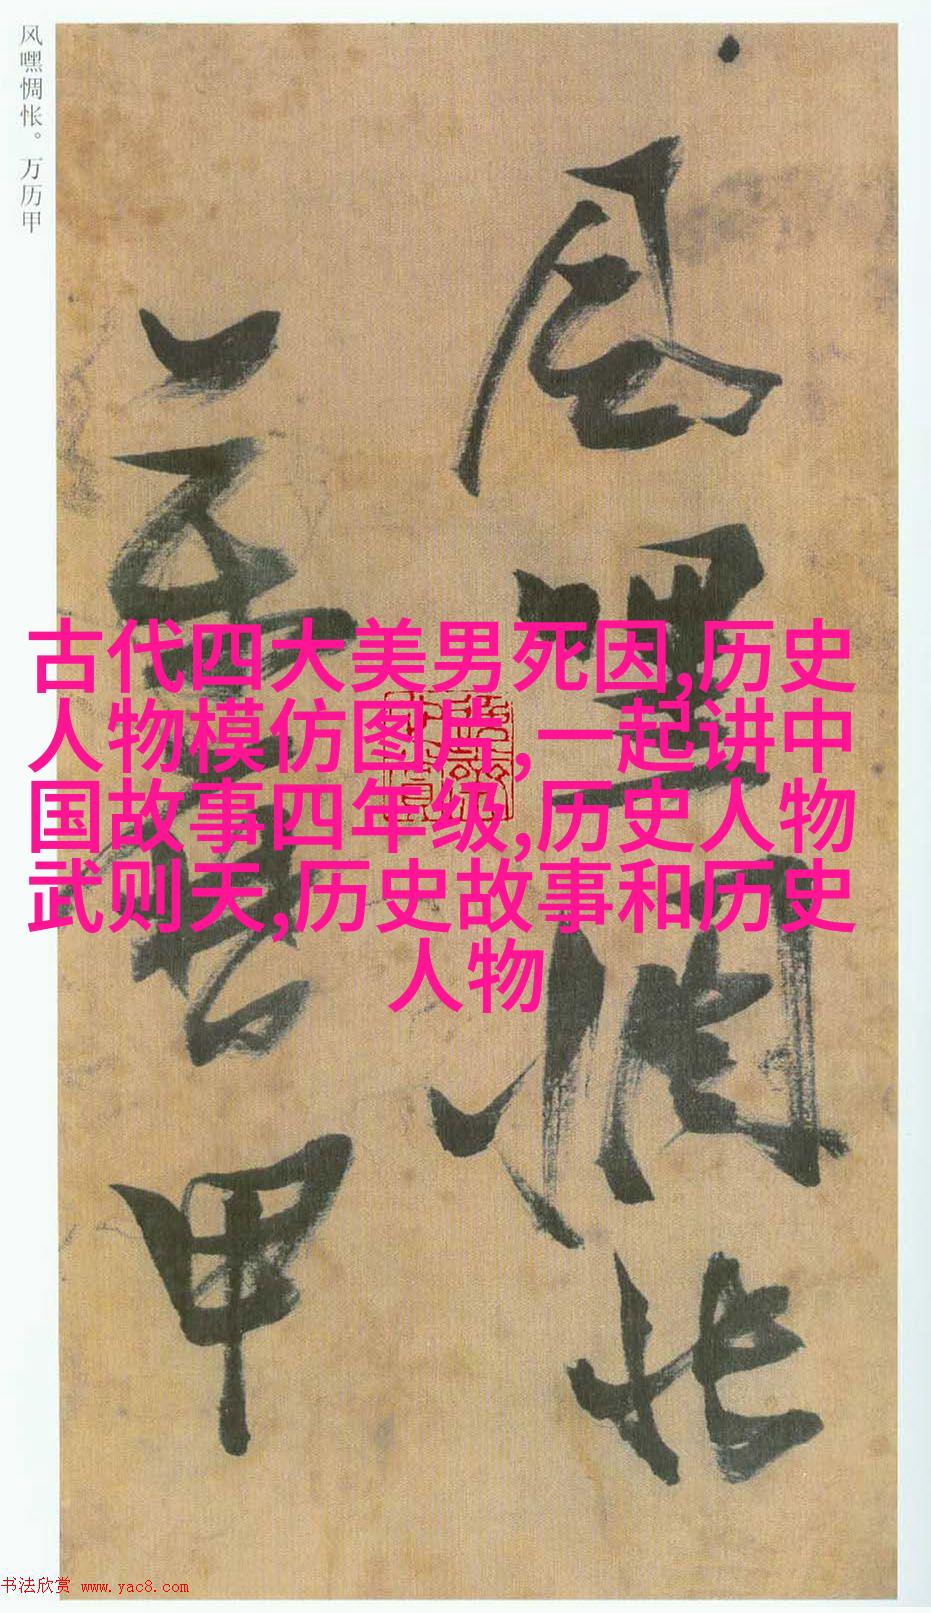 风嘿惆怅。万历甲
风嘿惆怅
万历甲
古代四大美男死因,历史
人物模仿图片,一起讲中
国故事四年级,历史人物
武则天,历史故事和历史
人物
书法欣赏 www.yac8.com